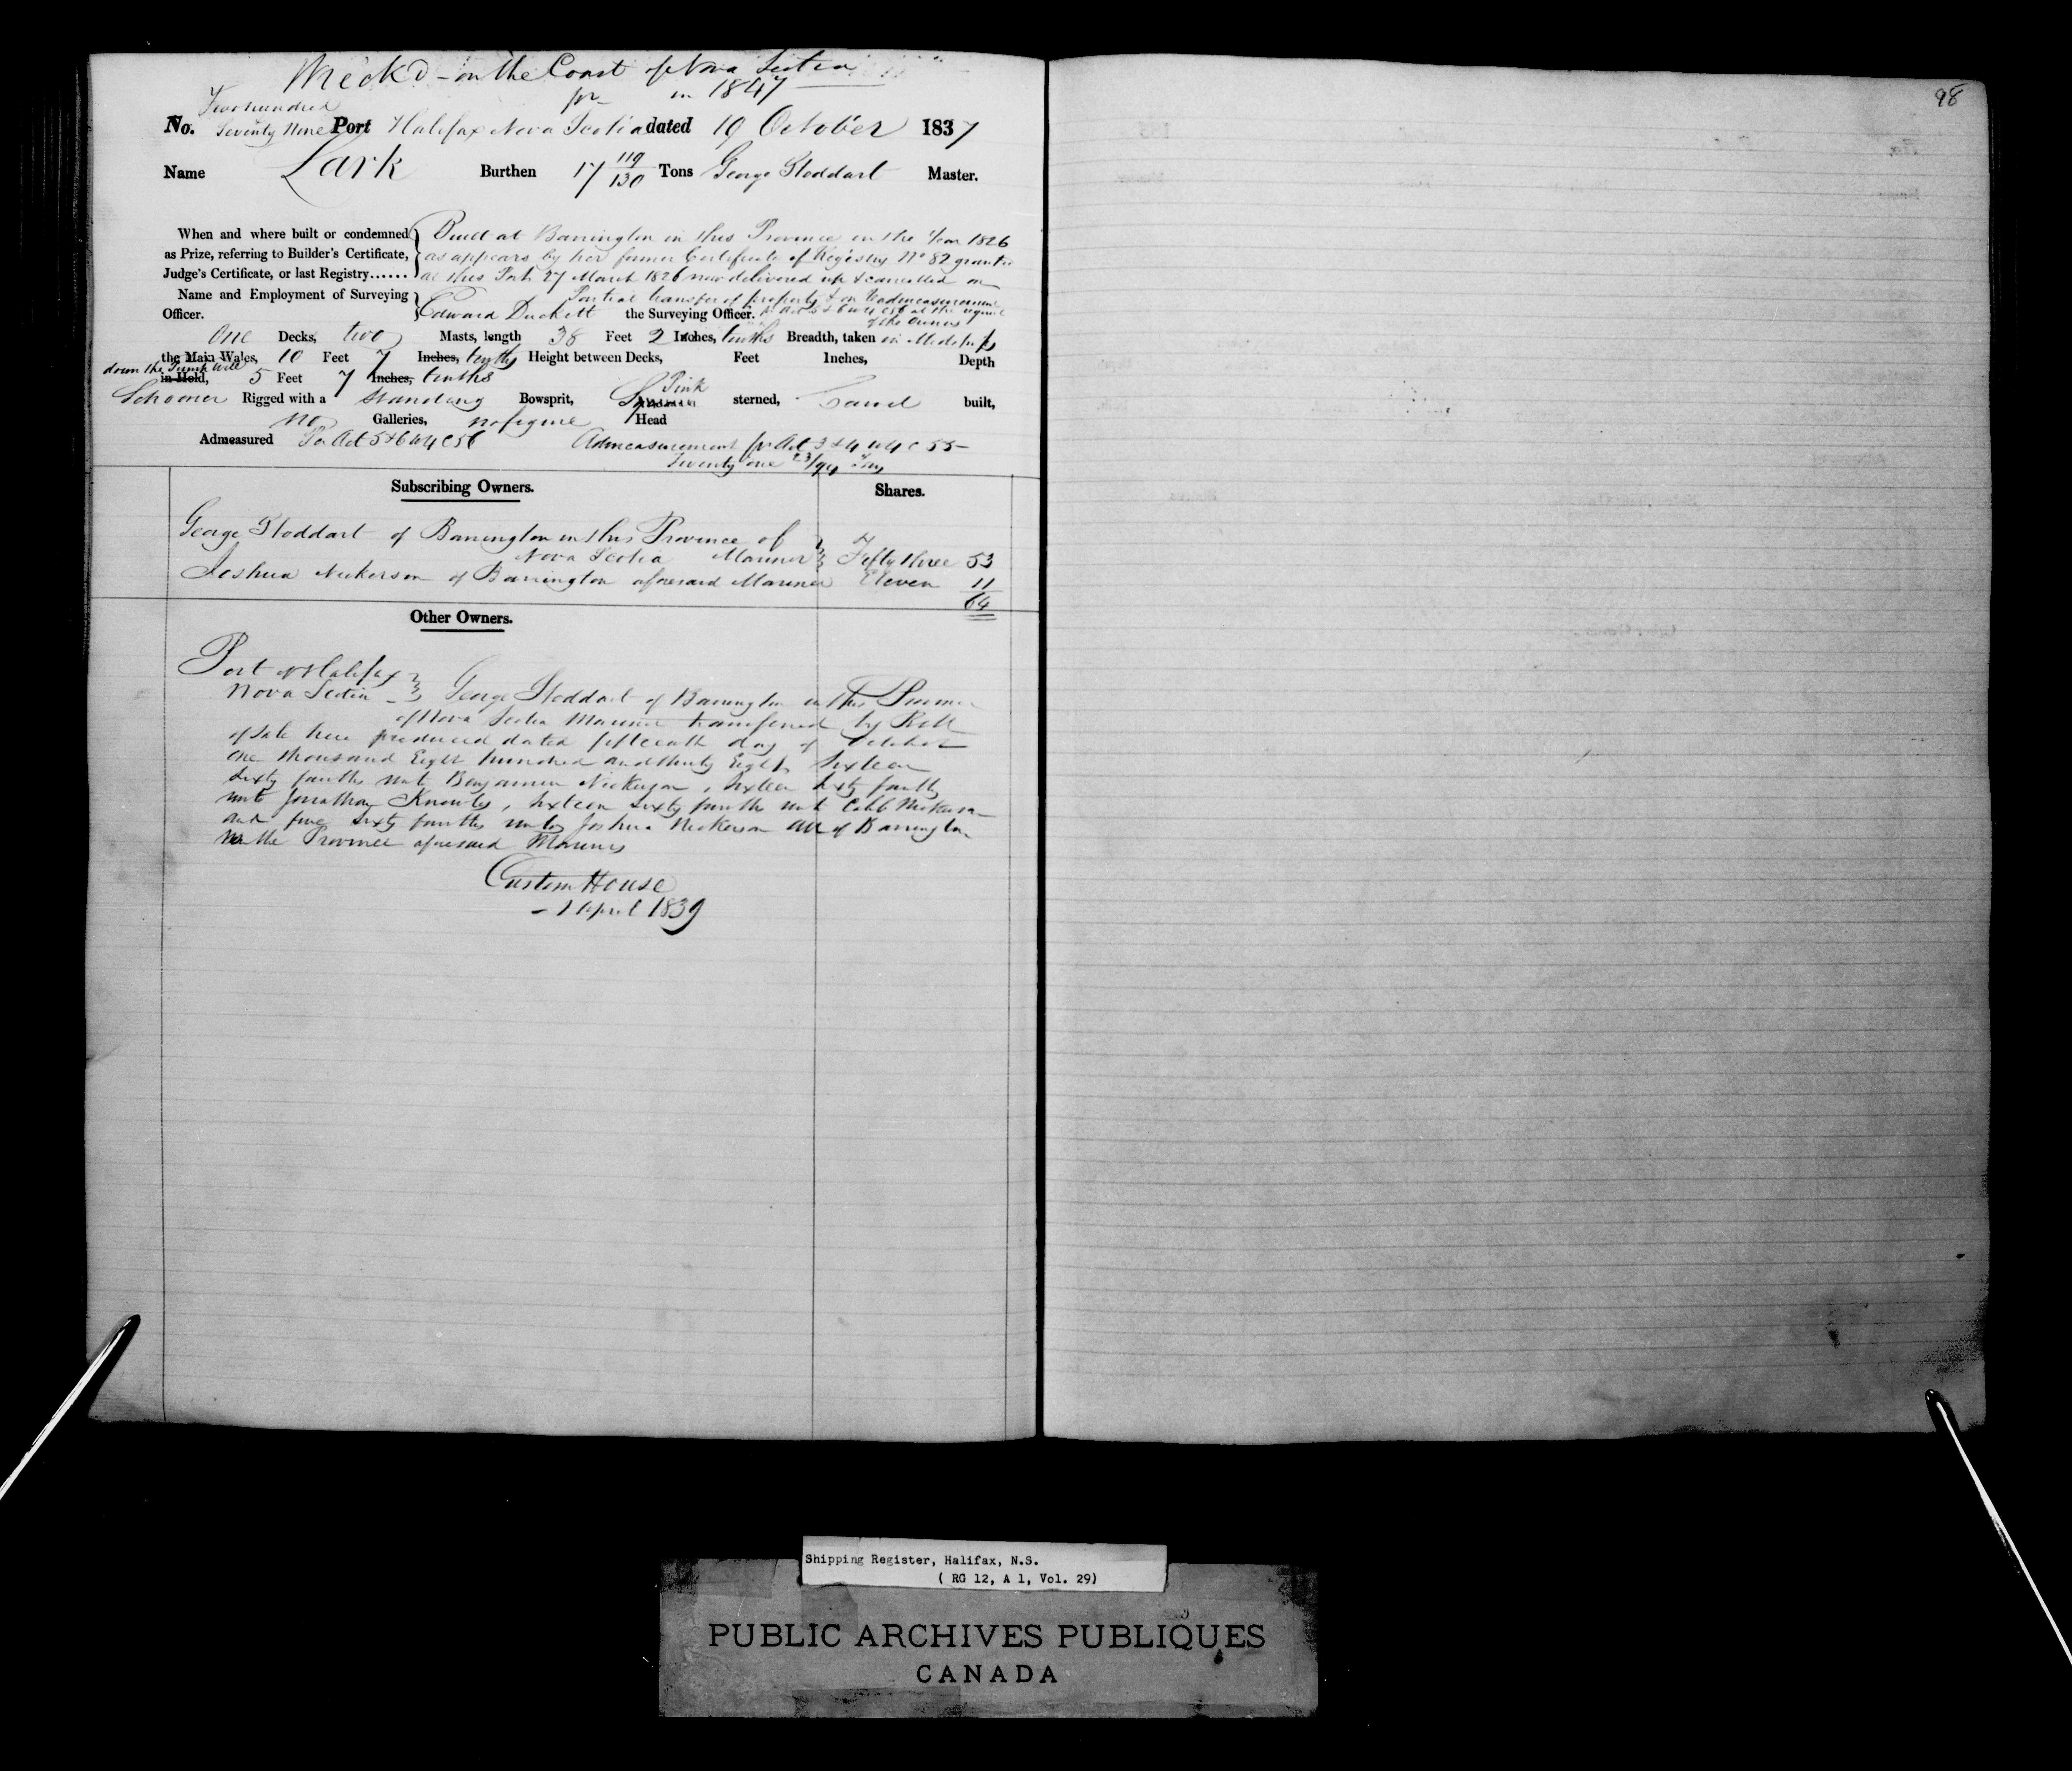 Wreck'd - on the Coast of Nova Scotia
pr in 1847
98
Two hundred
No. Seventy Nine Port Halifax Nova Scotia dated 19 October 1837
Name Lark Burthen 17 119/130 Tons George Stoddart Master.
When and where built or condemned as Prize, referring to Builder's Certificate, Judge's Certificate, or last Registry......
Built at Barrington in this Province in the Year 1826
as appears by her former Certificate of Registry No 82 granted
at this Port 27 March 1826 now delivered up & cancelled on
Partial transfer of property & on Readmeasurement
pr Act 5 & 6 W 4 C 56 at the request
of the Owners
Name and Employment of Surveying Officer. Edward Duckett the Surveying Officer.
One Decks, two Masts, length 38 Feet 2 Inches, tenths Breadth, taken in Midships
the Main Wales, 10 Feet 7 Inches, tenths Height between Decks, Feet Inches, Depth
down the Pump Well
in Hold, 5 Feet 7 Inches, tenths
Pink
Schooner Rigged with a Standing Bowsprit, sterned, Carvel built,
no Galleries, no figure Head
Admeasured Per Act 5 & 6 W 4 C 56 Admeasurement pr Act 3 & 4 W 4 C 55 -
Twenty one 23/94 Tons
Subscribing Owners. Shares.
George Stoddart of Barrington in this Province of
Nova Scotia Mariner Fifty three 53
Joshua Nickerson of Barrington aforesaid Mariner Eleven 11
64
Other Owners.
Port of Halifax
Nova Scotia George Stoddart of Barrington in this Province
of Nova Scotia Mariner transferred by Bill
of Sale here produced dated fifteenth day of October
One thousand Eight hundred and thirty Eight Sixteen
Sixty fourths unto Benjamin Nickerson, Sixteen Sixty fourths
unto Jonathan Knowles, Sixteen Sixty fourths unto Nickerson
and five Sixty fourths unto Joshua Nickerson all of Barrington
in the Province aforesaid Mariners
Custom House
- 1 April 1839
Shipping Register, Halifax, N.S.
( RG 12, A 1, Vol. 29)
PUBLIC ARCHIVES PUBLIQUES
CANADA